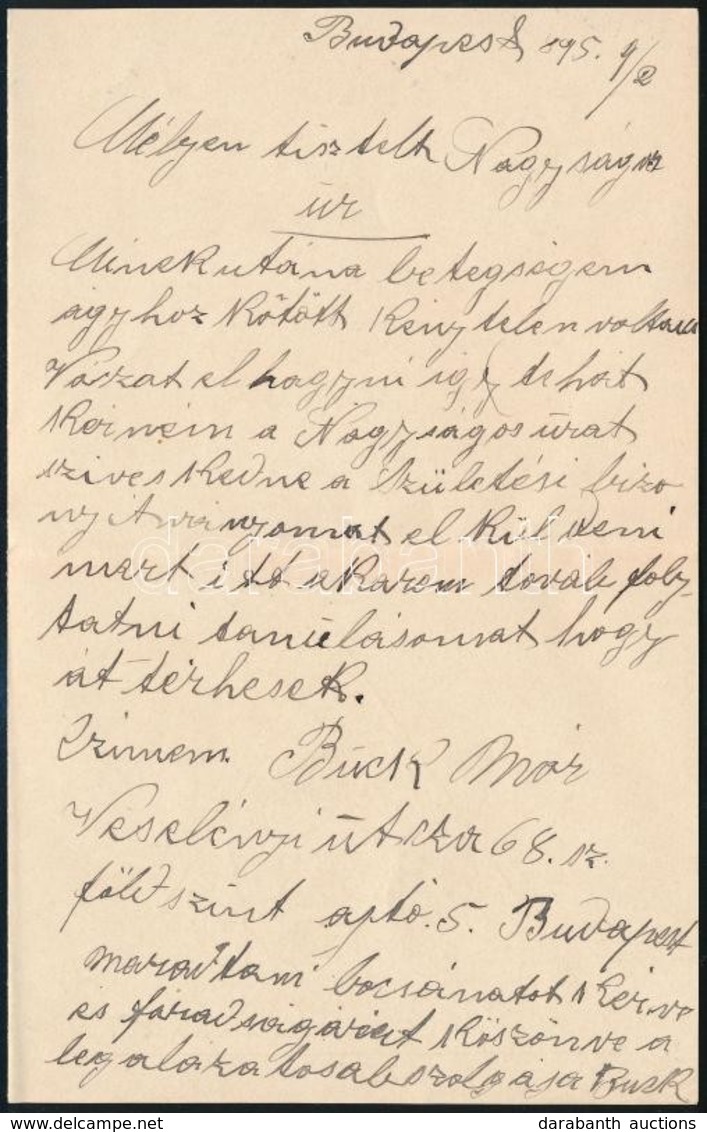 Budapest 895. 9/2
Mélyen tisztelt Nagyságos
úr
Minekutána betegségem
ágyhoz kötött kénytelen voltam
Vászat elhagyni így tehát
kérném a Nagyságos úrat
sziveskedne a születési bizo
nyitványomat elküldeni
mert itt akarom továb foly-
tatni tanulásomat hogy
át térhesek.
Czimem Buck Mór
Veselényi útcza 68. sz.
föld szint ajtó. 5. Budapest
maradtam bocsánatot kérve
és fáradságáért köszönve a
legalázatosab szolgája Buck
databanth
darabanth auctions